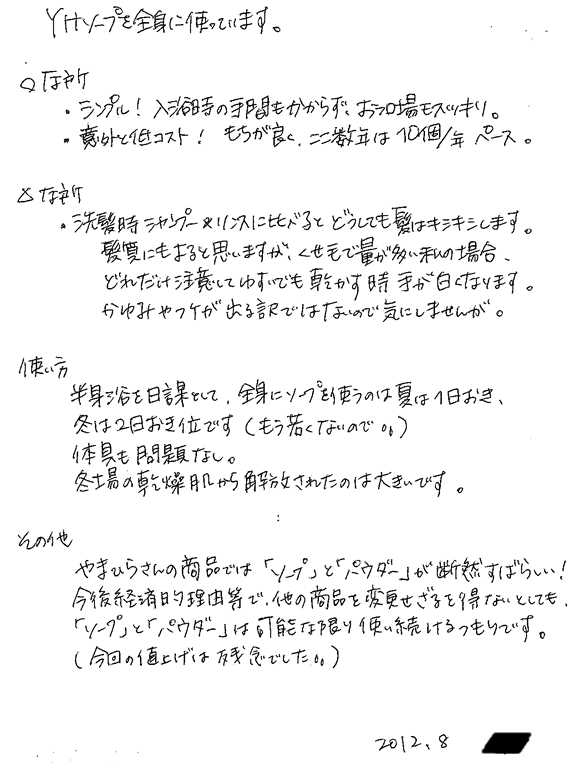 YHソープを全身に使っています。
○な所
・シンプル! 入浴時の手間もかからず、お風呂場もスッキリ。
・意外と低コスト! もちが良く、ここ数年は10個/年 ペース。
△な所
・洗髪時シャンプー&リンスに比べると どうしても髪はキシキシします。
髪質にもよると思いますが、くせ毛で量が多い私の場合、
どれだけ注意してゆすいでも 乾かす時 手が白くなります。
かゆみやフケが出る訳ではないので気にしませんが。
使い方
半身浴を日課として、全身にソープを使うのは夏は1日おき、
冬は2日おき位です(もう若くないので。。)
体臭も問題なし。
冬場の乾燥肌から解放されたのは大きいです。
:
その他
やまひらさんの商品では「ソープ」と「パウダー」が断然すばらしい!
今後経済的理由等で、他の商品を変更せざるを得ないとしても、
「ソープ」と「パウダー」は可能な限り使い続けるつもりです。
(今回の値上げは残念でした。。)
2012.8